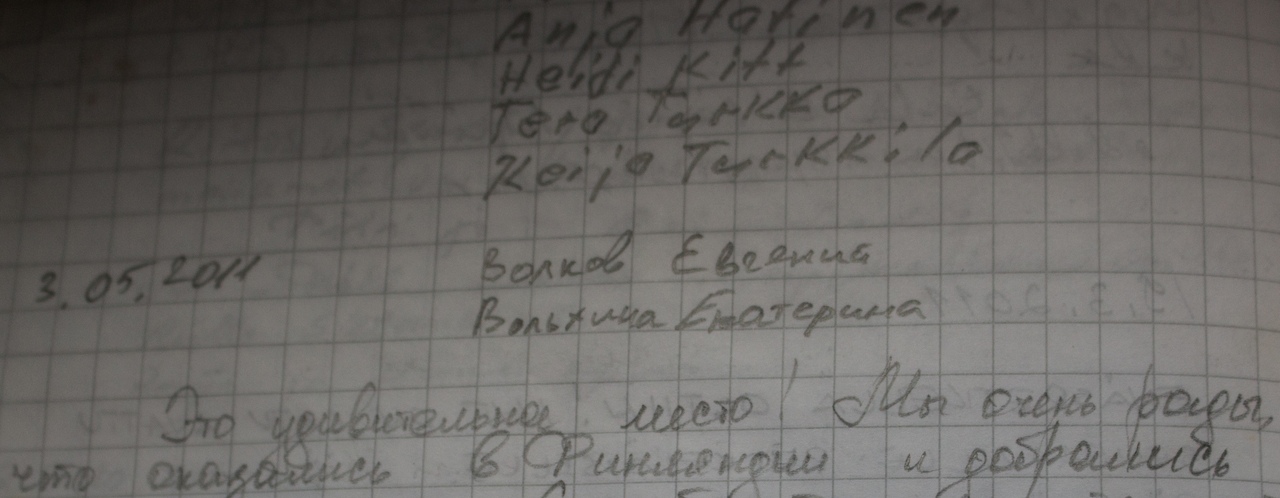 Anja Hatinen
Heidi Kitt
Tero Tyrkkö
Keijo Tyrkkilä
3.05.2011 Волков Евгений
Вольхина Екатерина
Это удивительное место! Мы очень рады,
что оказались в Финляндии и добрались